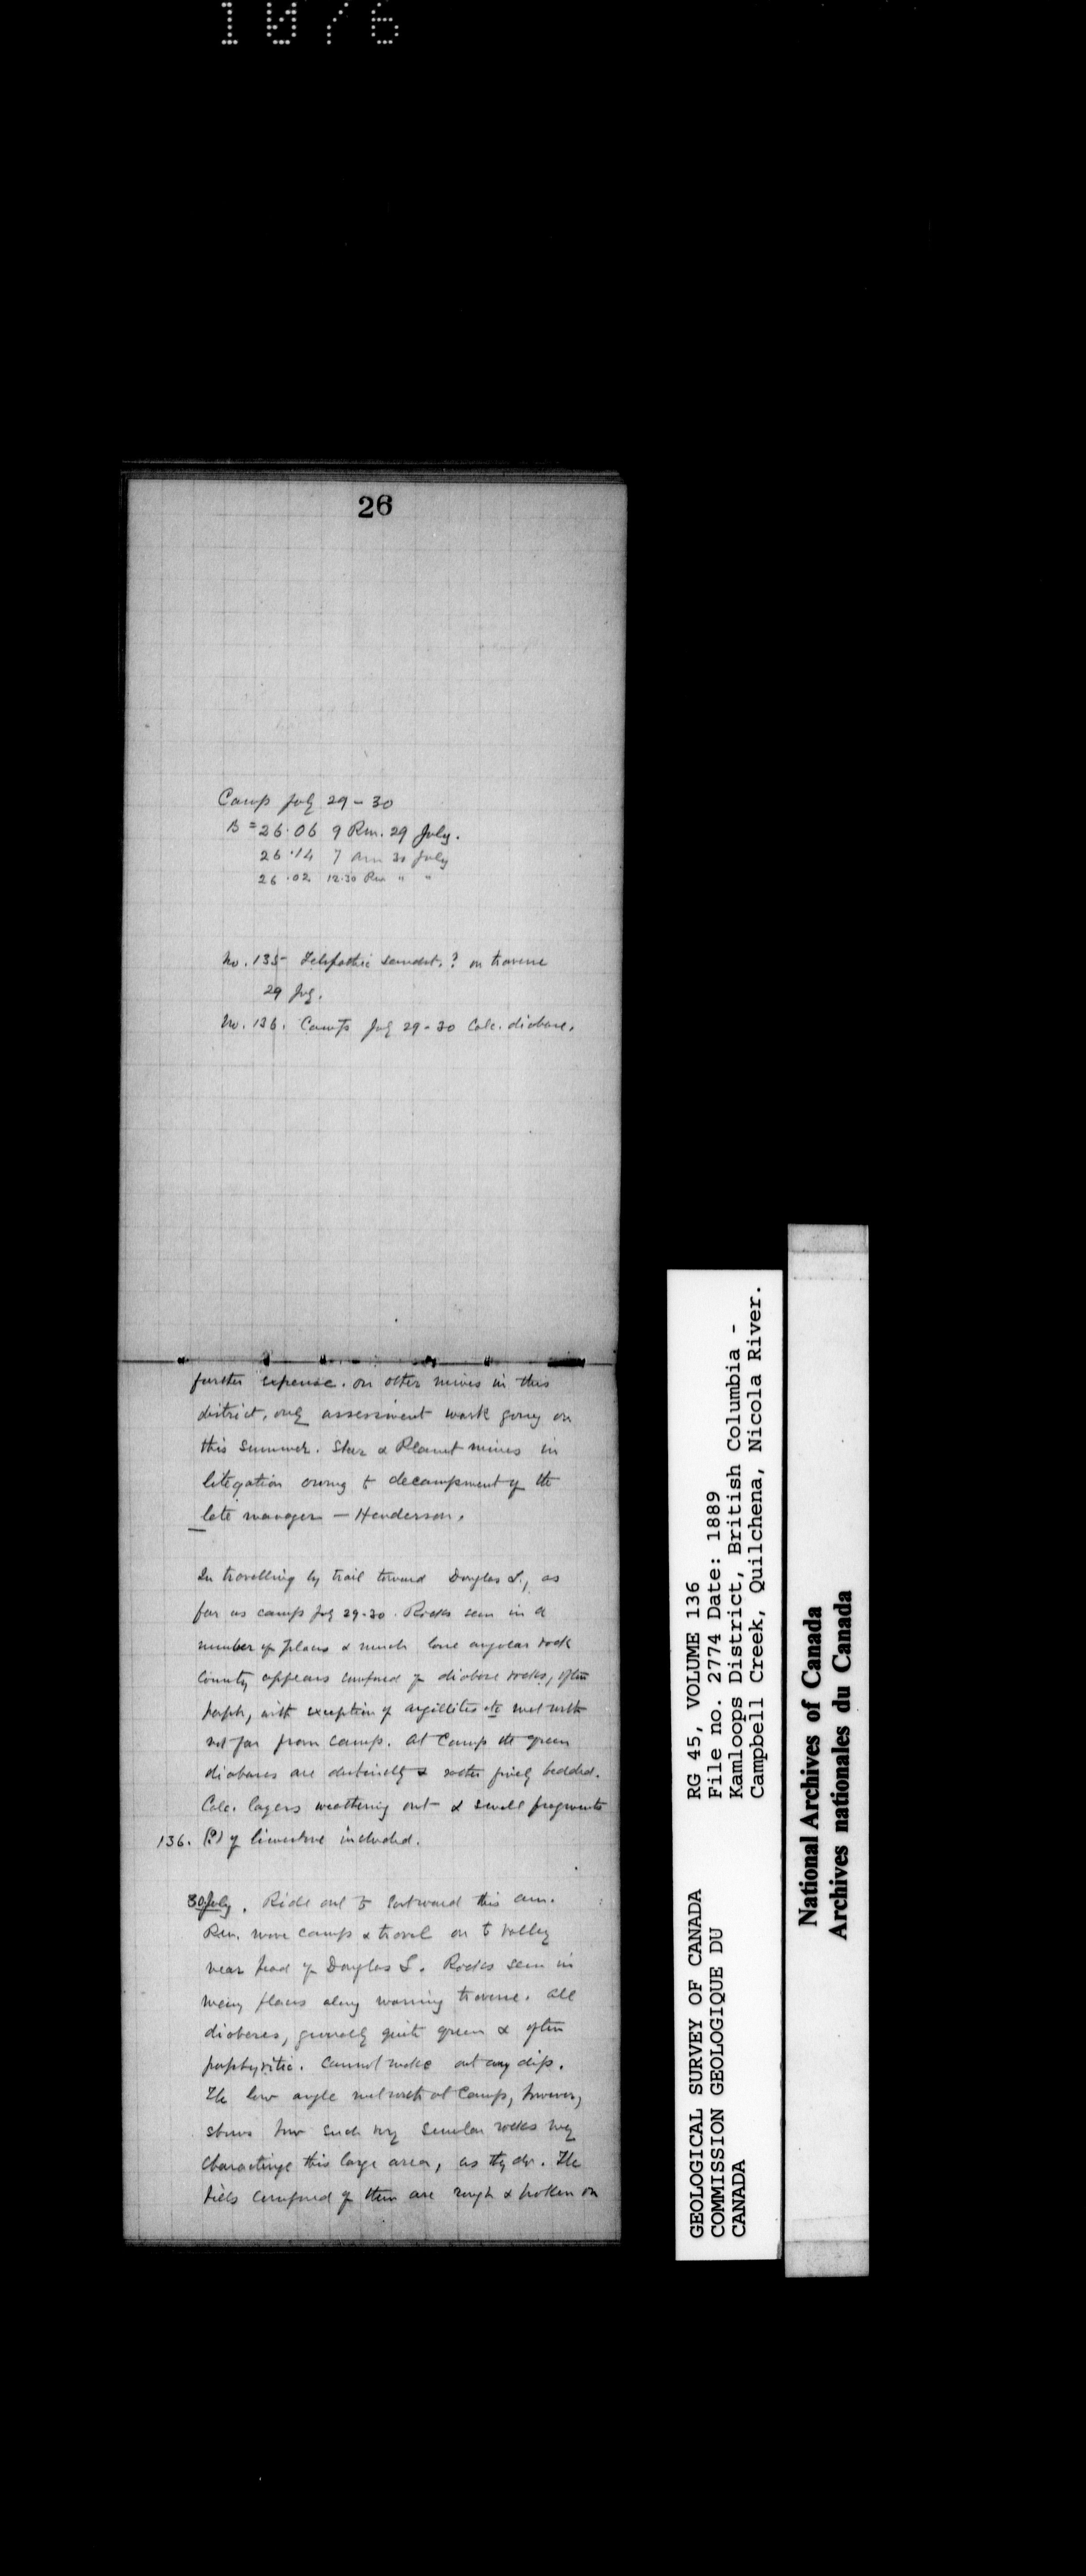 1076
26
Camp July 29 - 30
B = 26.06 9 P.m. 29 July.
26.14 7 Am 30 July
26.02 12.30 Pm " "
No. 135 Felspathic sandst. ? on traverse
29 July.
No. 136. Camp July 29-30 Calc. diabase.
further expense. on other mines in this
district, only assessment work going on
this summer. Star & Planet mines in
litigation owing to decampment of the
late manager — Henderson.
In travelling by trail toward Douglas L., as
far as camp July 29-30. Rocks seen in a
number of places & much loose angular rock
County appears composed of diabase rocks, often
porph, with exception of argillites etc met with
not far from camp. At Camp the green
diabases are distinctly & rather finely bedded.
Calc. layers weathering out & small fragments
136. (?) of limestone included.
30 July. Ride out to the am.
Pm. move camp & travel on to valley
near head of Douglas L. Rocks seen in
many places along morning traverse. All
diabases, generally quite green & often
porphyritic. Cannot make out any dip.
The low angle met with at Camp, however,
shows how such very similar rocks may
characterize this large area, as they do. The
hills composed of them are rough & broken on
RG 45, VOLUME 136
File no. 2774 Date: 1889
Kamloops District, British Columbia -
Campbell Creek, Quilchena, Nicola River.
GEOLOGICAL SURVEY OF CANADA
COMMISSION GEOLOGIQUE DU
CANADA
National Archives of Canada
Archives nationales du Canada